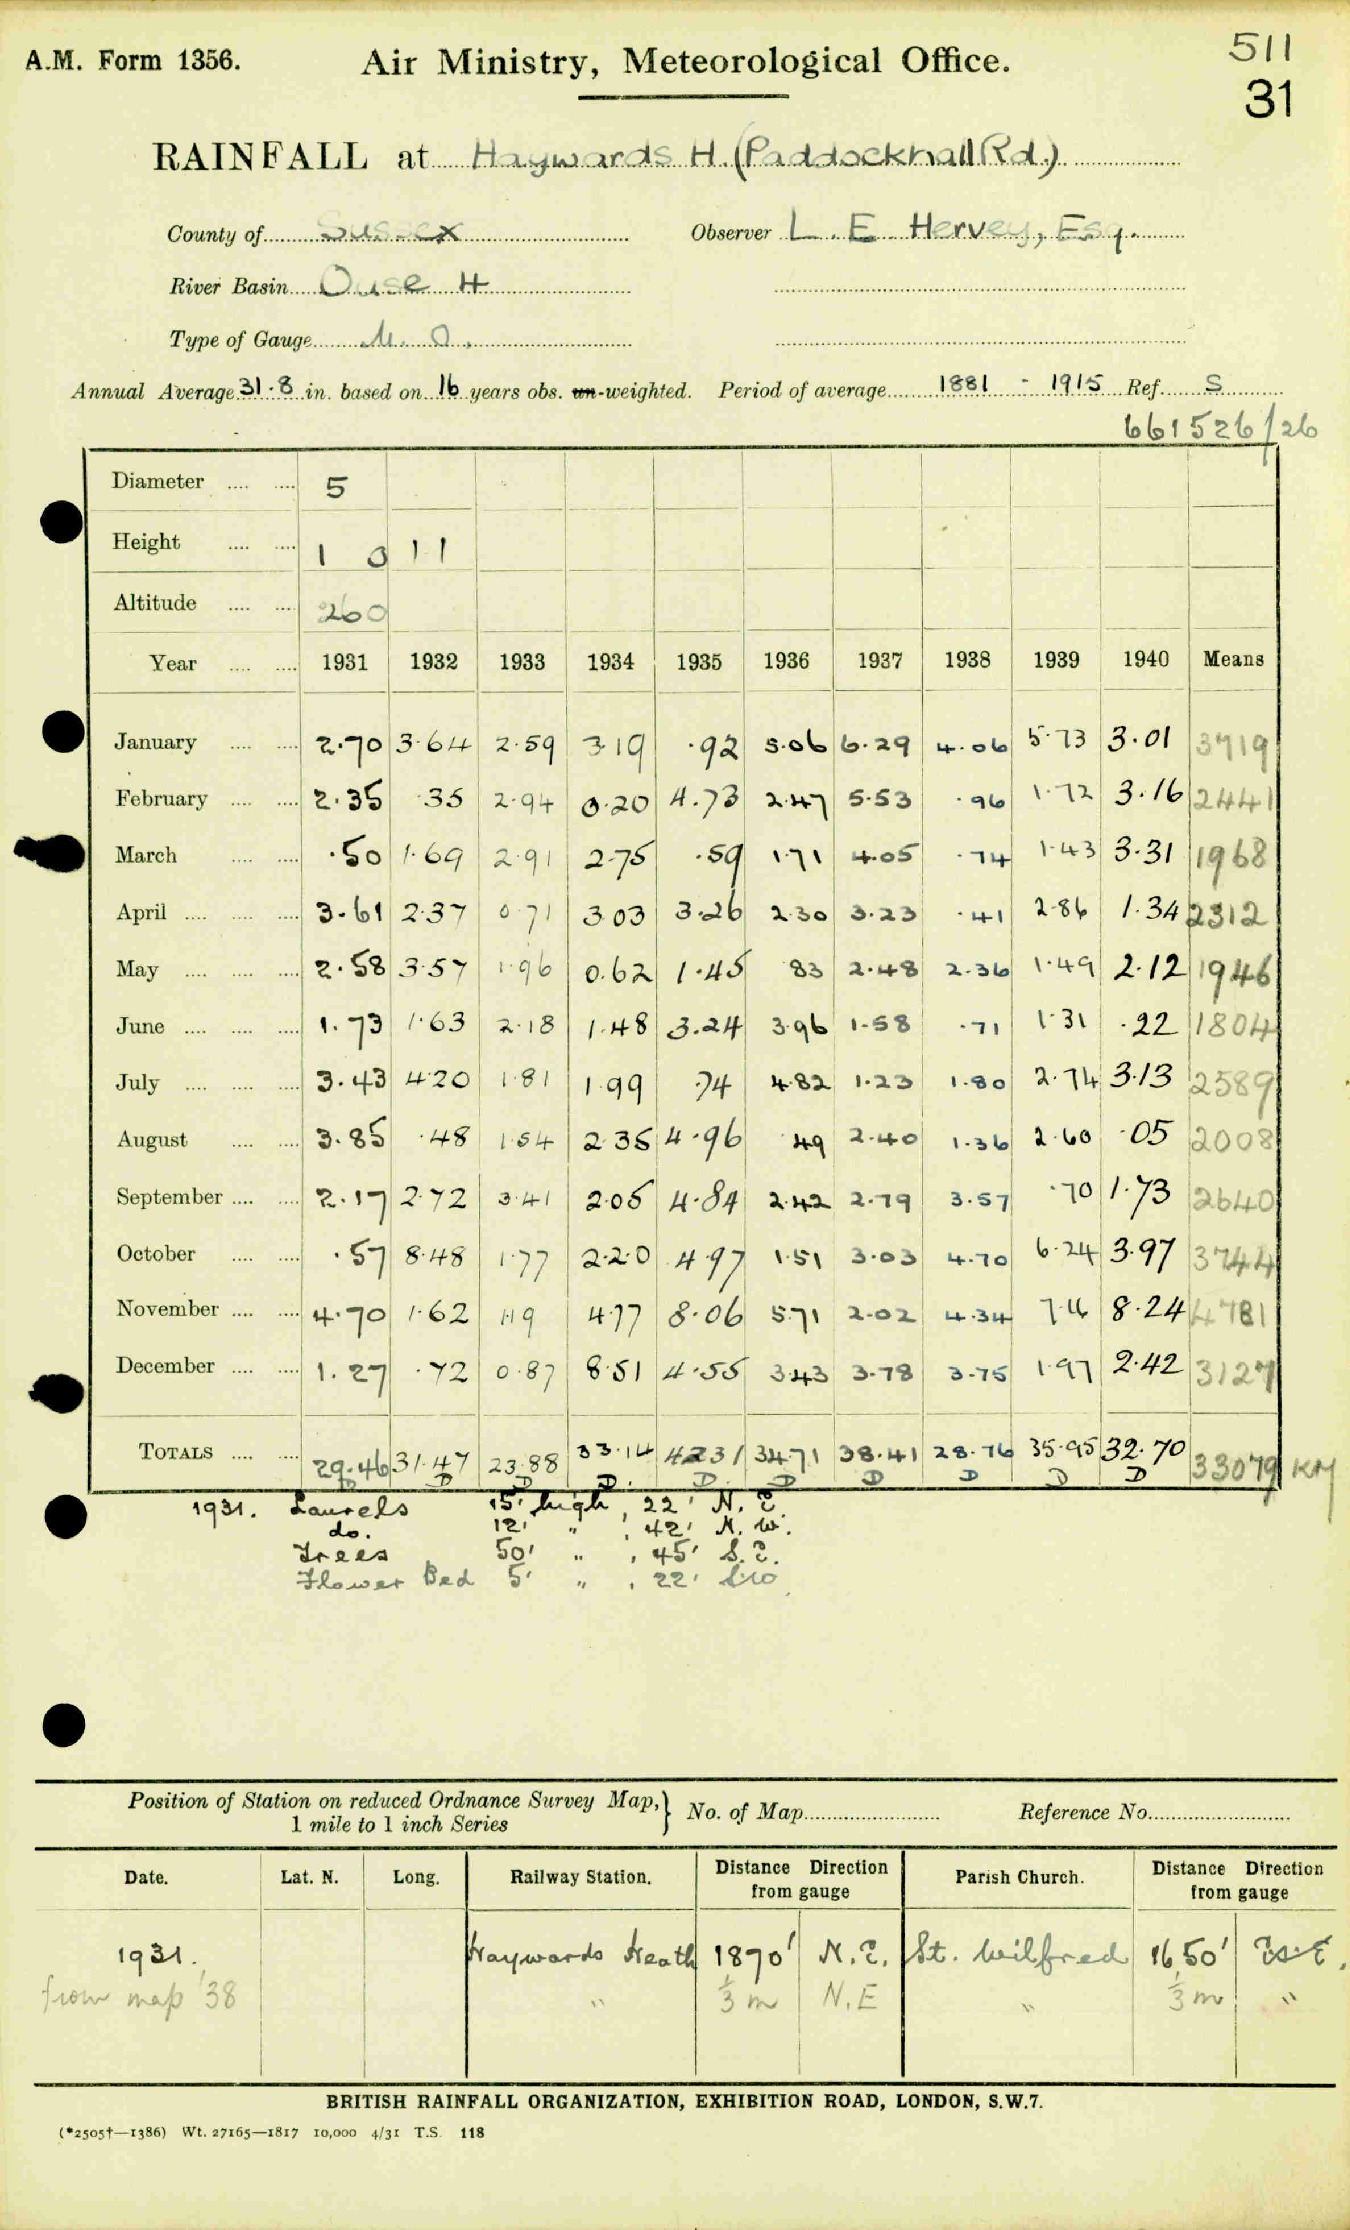 A.M. Form 1356. Air Ministry, Meteorological Office. 511
31
RAINFALL at Haywards H. (Paddockhall Rd.)
County of Sussex Observer L. E Hervey, Esq.
River Basin Ouse 4
Type of Gauge M. O.
Annual Average 31.8 in. based on 16 years obs. un-weighted. Period of average 1881 - 1915 Ref. S
661526/26
Diameter .... .... 5
Height .... .... 1 0 11
Altitude .... .... 260
Year .... .... 1931 1932 1933 1934 1935 1936 1937 1938 1939 1940 Means
January .... .... 2.70 3.64 2.59 3.19 .92 5.06 6.29 4.06 5.73 3.01 3719
February .... .... 2.35 .35 2.94 0.20 4.73 2.47 5.53 .96 1.72 3.16 2441
March .... .... .50 1.69 2.91 2.75 .59 1.71 4.05 .74 1.43 3.31 1968
April .... .... .... 3.61 2.37 0.71 3.03 3.26 2.30 3.23 .41 2.86 1.34 2312
May .... .... .... 2.58 3.57 1.96 0.62 1.45 83 2.48 2.36 1.49 2.12 1946
June .... .... .... 1.73 1.63 2.18 1.48 3.24 3.96 1.58 .71 1.31 .22 1804
July .... .... .... 3.43 4.20 1.81 1.99 .74 4.82 1.23 1.80 2.74 3.13 2589
August .... .... 3.85 .48 1.54 2.35 4.96 49 2.40 1.36 2.60 .05 2008
September .... .... 2.17 2.72 3.41 2.05 4.84 2.42 2.79 3.57 .70 1.73 2640
October .... .... .57 8.48 1.77 2.20 4.97 1.51 3.03 4.70 6.24 3.97 3744
November .... .... 4.70 1.62 1.19 4.77 8.06 5.71 2.02 4.34 7.16 8.24 4781
December .... .... 1.27 .72 0.87 8.51 4.55 3.43 3.78 3.75 1.97 2.42 3127
TOTALS .... .... 29.46 31.47 23.88 33.14 42.31 34.71 38.41 28.76 35.95 32.70 33079 KM
D D D D. D D D D D D
1931. Laurels 15' high, 22' N. E.
do. 12' " , 42' N. W.
Trees 50' " , 45' S. E.
Flower Bed 5' " , 22'
Position of Station on reduced Ordnance Survey Map, } No. of Map Reference No.
1 mile to 1 inch Series
Date. Lat. N. Long. Railway Station. Distance Direction from gauge Parish Church. Distance Direction from gauge
1931. Haywards Heath 1870' N.E. St. Wilfred 1650'
from map '38 " 1/3 m N.E " 1/3 m "
BRITISH RAINFALL ORGANIZATION, EXHIBITION ROAD, LONDON, S.W.7.
(*2505†—1386) Wt. 27165—1817 10,000 4/31 T.S. 118